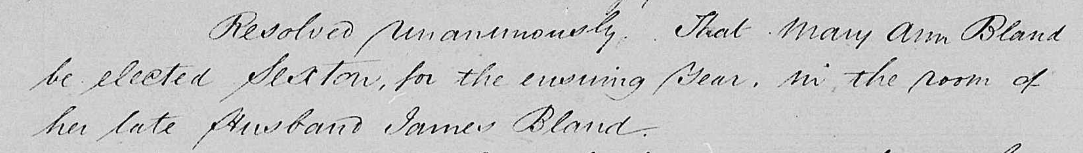 Resolved unanimously. That Mary Ann Bland
be elected Sexton, for the ensuing Year, in the room of
her late Husband James Bland.